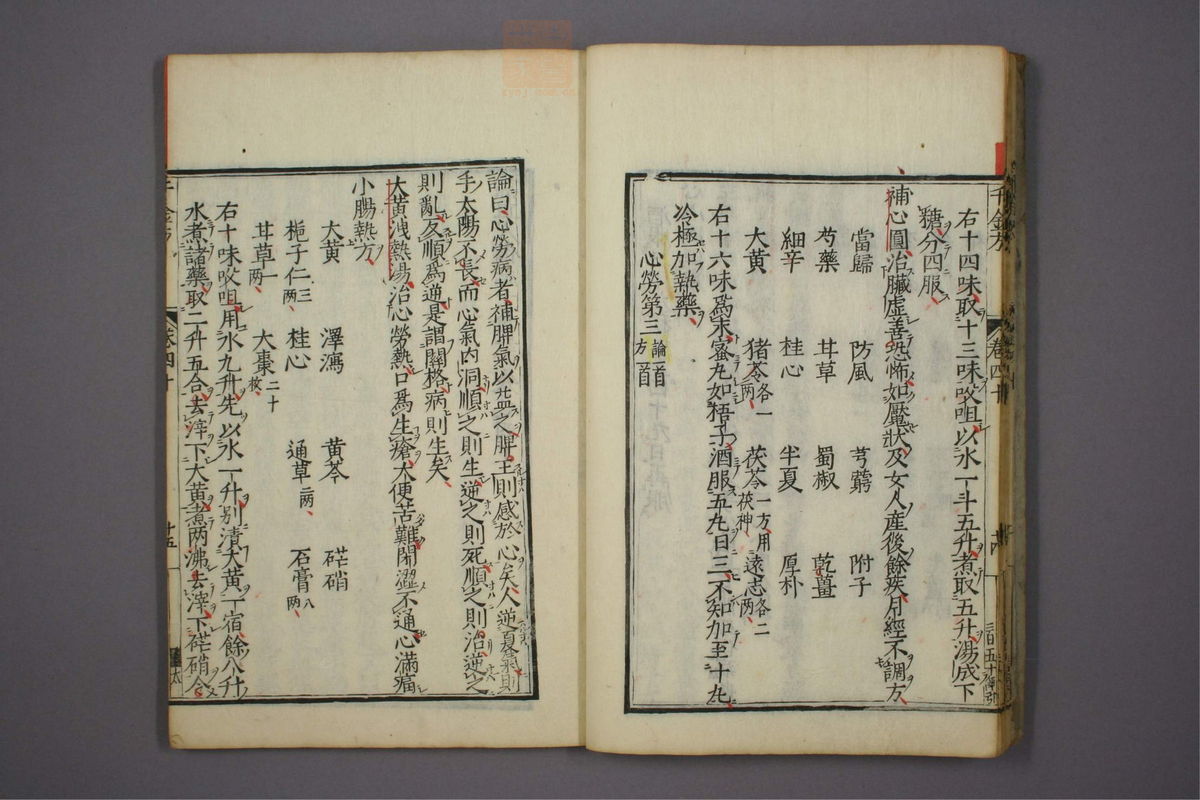 右十四味取十三味㕮咀以水一斗五升煮取五升湯成下
糖分四服
補心圓治臟虛善恐怖如魘狀及女人産後餘疾月經不調方
當歸 防風 芎藭 附子
芍藥 甘草 蜀椒 乾薑
細辛 桂心 半夏 厚朴
大黃 猪苓各一兩 茯苓一方用茯神 遠志各二兩
右十六味爲末蜜丸如梧子酒服五丸日三不知加至十丸
冷極加熱藥
心勞第三 論一首 方一首
論曰心勞病者補脾氣以益之脾王則感於心矣人逆夏氣則
手太陽不長而心氣内洞順之則生逆之則死順之則治逆之
則亂反順爲逆是謂關格病則生矣
大黃洩熱湯治心勞熱口爲生瘡大便苦難閉澀不通心滿痛
小腸熱方
大黃 澤瀉 黃芩 芒硝
梔子仁三兩 桂心 通草二兩 石膏八兩
甘草一兩 大棗二十枚
右十味㕮咀用水九升先以水一升別漬大黃一宿餘八升
水煮諸藥取二升五合去滓下大黃煮兩沸去滓下芒硝令
千金方 卷四十 十五